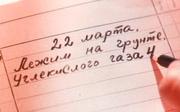 22 марта.
Лежим на грунте.
Углекислого газа 4